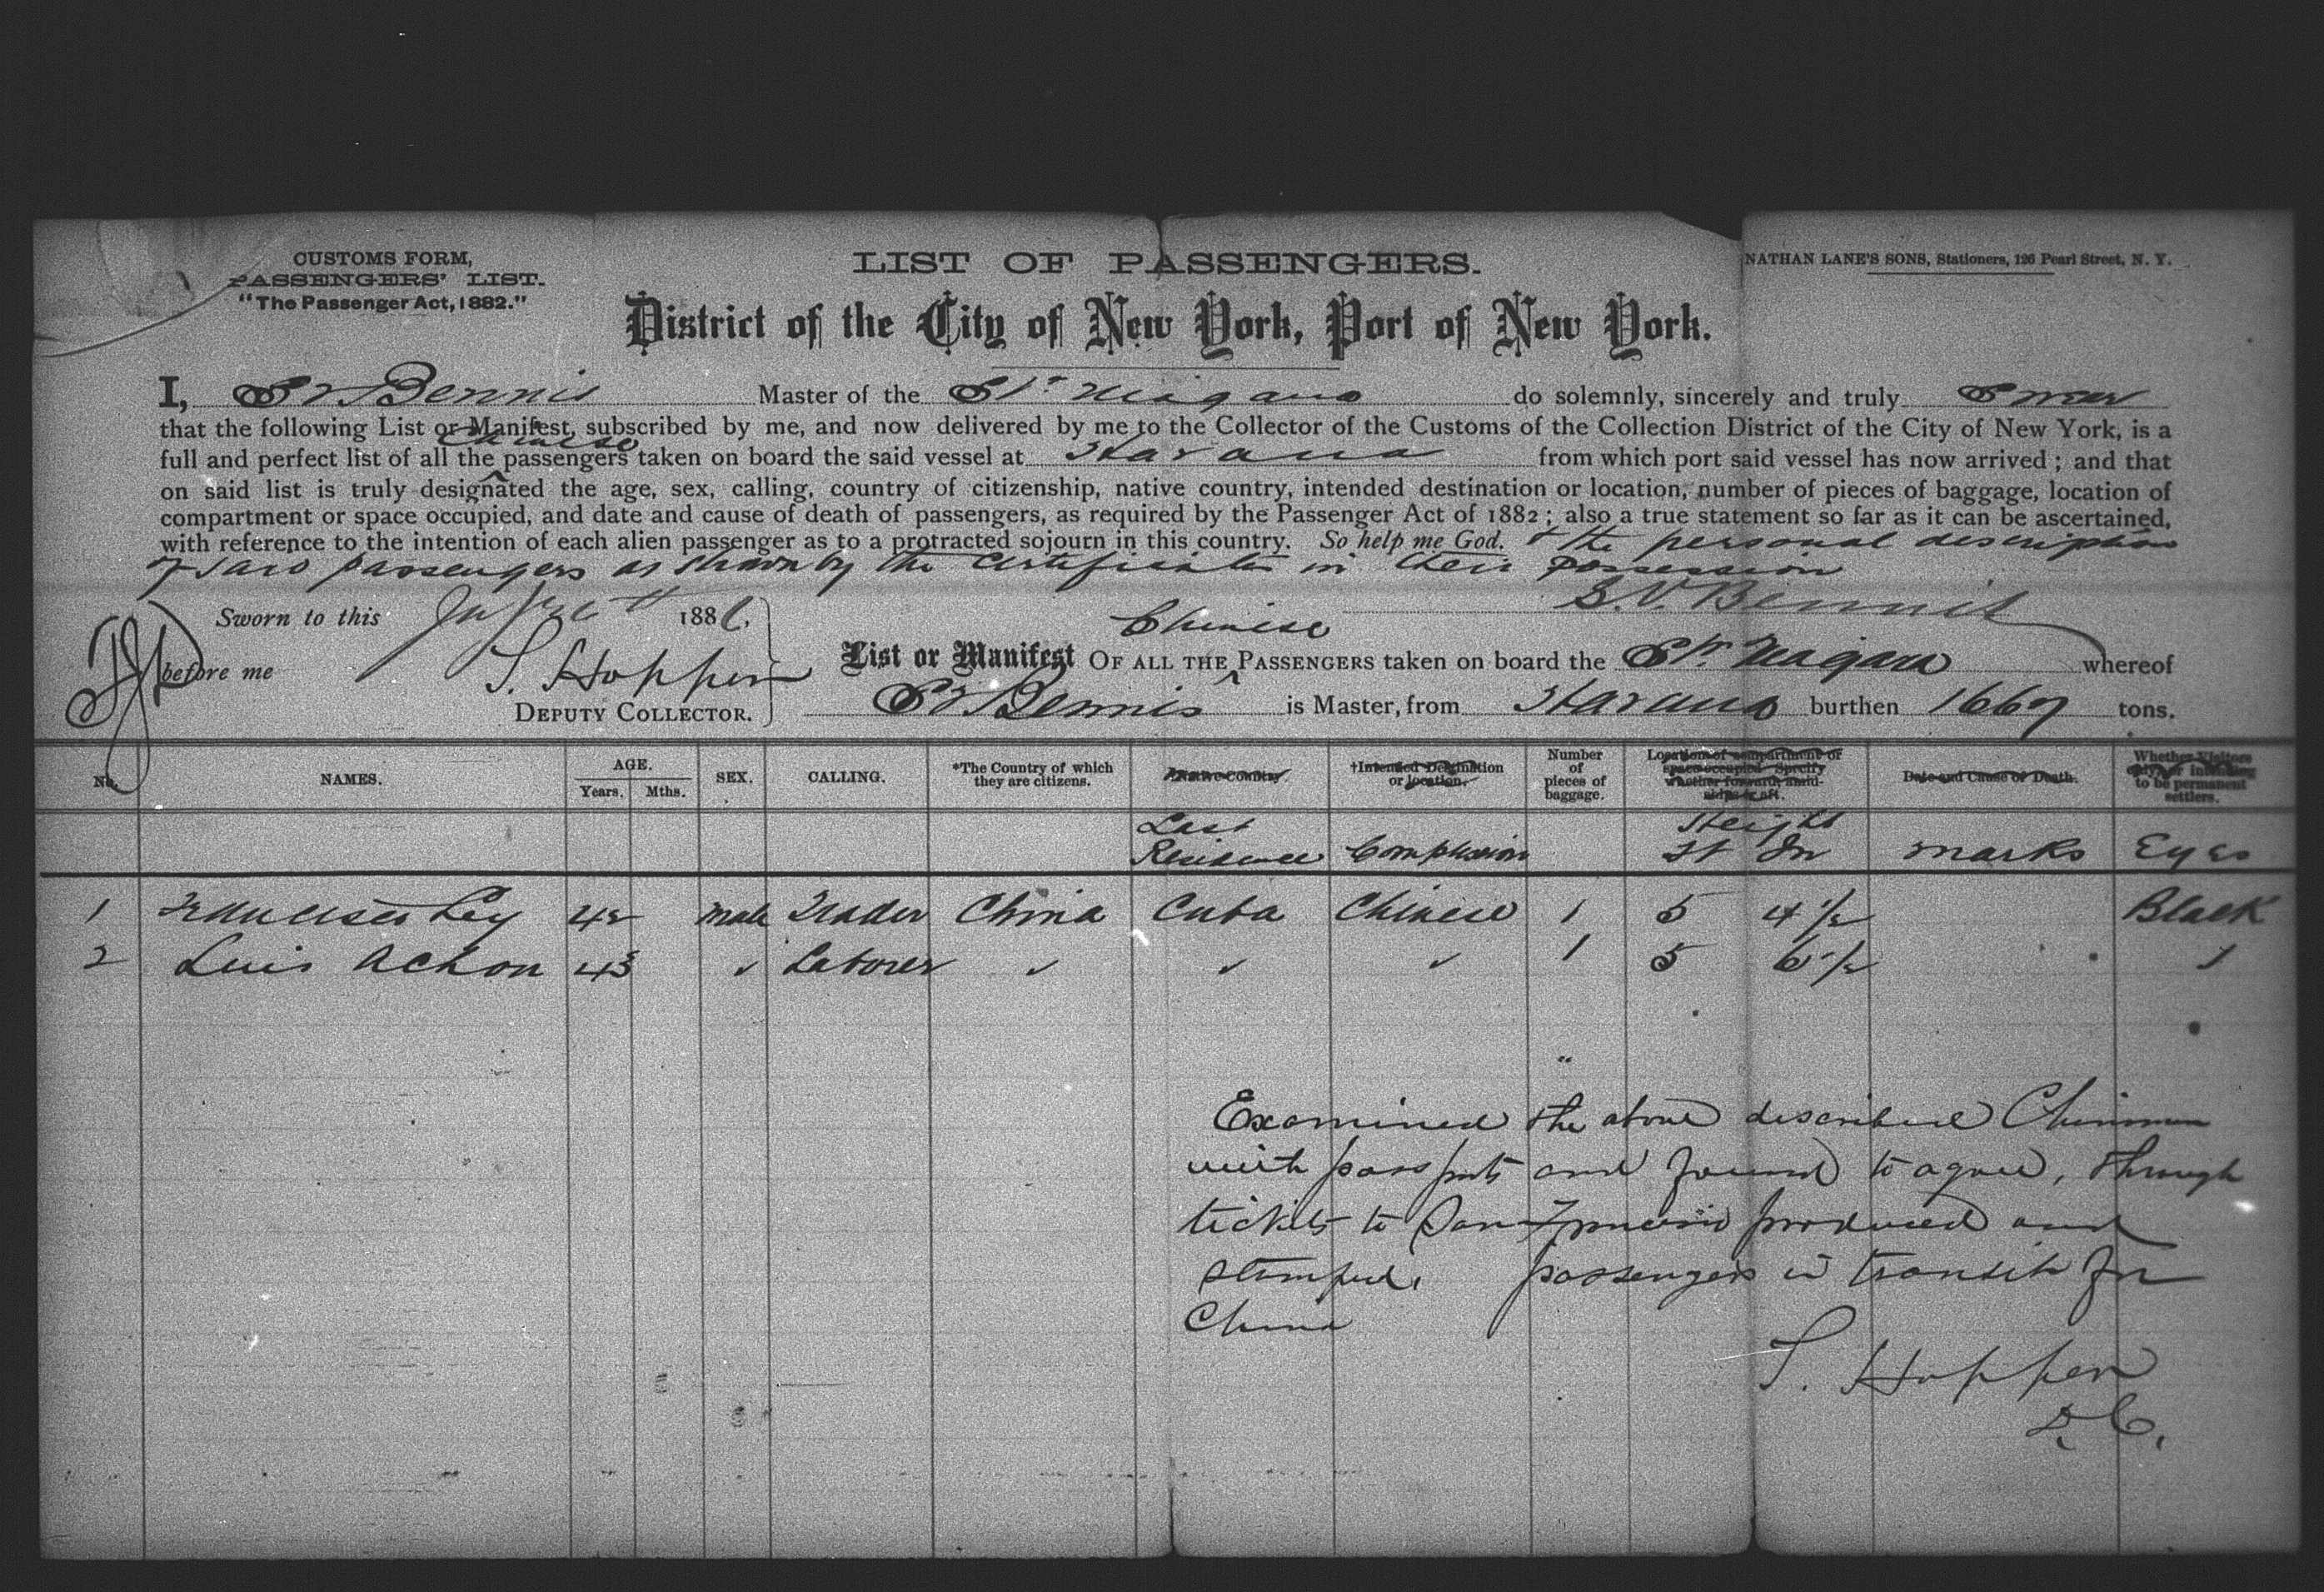 CUSTOMS FORM,
PASSENGERS' LIST.
"The Passenger Act, 1882."
LIST OF PASSENGERS.
NATHAN LANE'S SONS, Stationers, 126 Pearl Street, N. Y.
District of the City of New York, Port of New York.
I, S V Bennis Master of the Str Niagara do solemnly, sincerely and truly Swear
that the following List or Manifest, subscribed by me, and now delivered by me to the Collector of the Customs of the Collection District of the City of New York, is a
Chinese
full and perfect list of all the passengers taken on board the said vessel at Havana from which port said vessel has now arrived ; and that
on said list is truly designated the age, sex, calling, country of citizenship, native country, intended destination or location, number of pieces of baggage, location of
compartment or space occupied, and date and cause of death of passengers, as required by the Passenger Act of 1882 ; also a true statement so far as it can be ascertained,
with reference to the intention of each alien passenger as to a protracted sojourn in this country. So help me God. & the personal description
of said passengers as shown by the Certificates in their possession
S.V. Bennis
Sworn to this 1886.
before me
S. Hopper
DEPUTY COLLECTOR.
Chinese
List or Manifest OF ALL THE PASSENGERS taken on board the Str. Niagara whereof
S V Bennis is Master, from Havana burthen 1667 tons.
No. NAMES. AGE. Years. Mths. SEX. CALLING. *The Country of which they are citizens. Native Country †Intended Destination or location. Number of pieces of baggage. Location of compartment or space occupied Specify whether forward, amidships or aft. Date and Cause of Death. Whether Visitors only or intending to be permanent settlers.
Last Residence Complexion Height Ft In Marks Eyes
1 Ley 42 male Trader China Cuba Chinese 1 5 4 1/2 Black
2 Luis Achon 43 " Laborer " " " 1 5 6 1/2 "
Examined the above described Chinamen
with passports and found to agree, through
tickets to San Francisco produced and
stamped. passengers in transit for
China
S. Hopper
D. C.